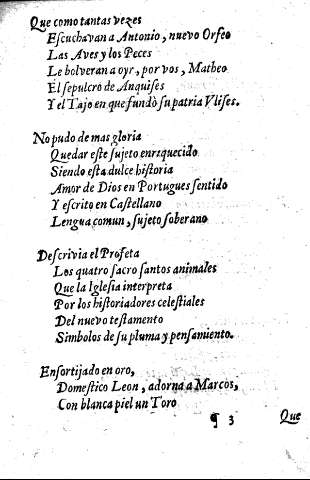 Que como tantas vezes
Escuchavan a Antonio, nuevo Orfeo
Las Aves y los Peces
Le bolveran a oyr, por vos, Matheo
El sepulcro de Anquises
Y el Tajo en que fundò su patria Vlises.
No pudo de mas gloria
Quedar este sujeto enrrquecido
Siendo esta dulce historia
Amor de Dios en Portugues sentido
Y escrito en Castellano
Lengua comun, sujeto soberano
Descrivia el Profeta
Los quatro sacro santos animales
Que la Iglesia interpreta
Por los historiadores celestiales
Del nuevo testamento
Simbolos de su pluma y pensamiento.
Ensortijado en oro,
Domestico Leon, adorna a Marcos,
Con blanca piel un Toro
¶ 3 Que